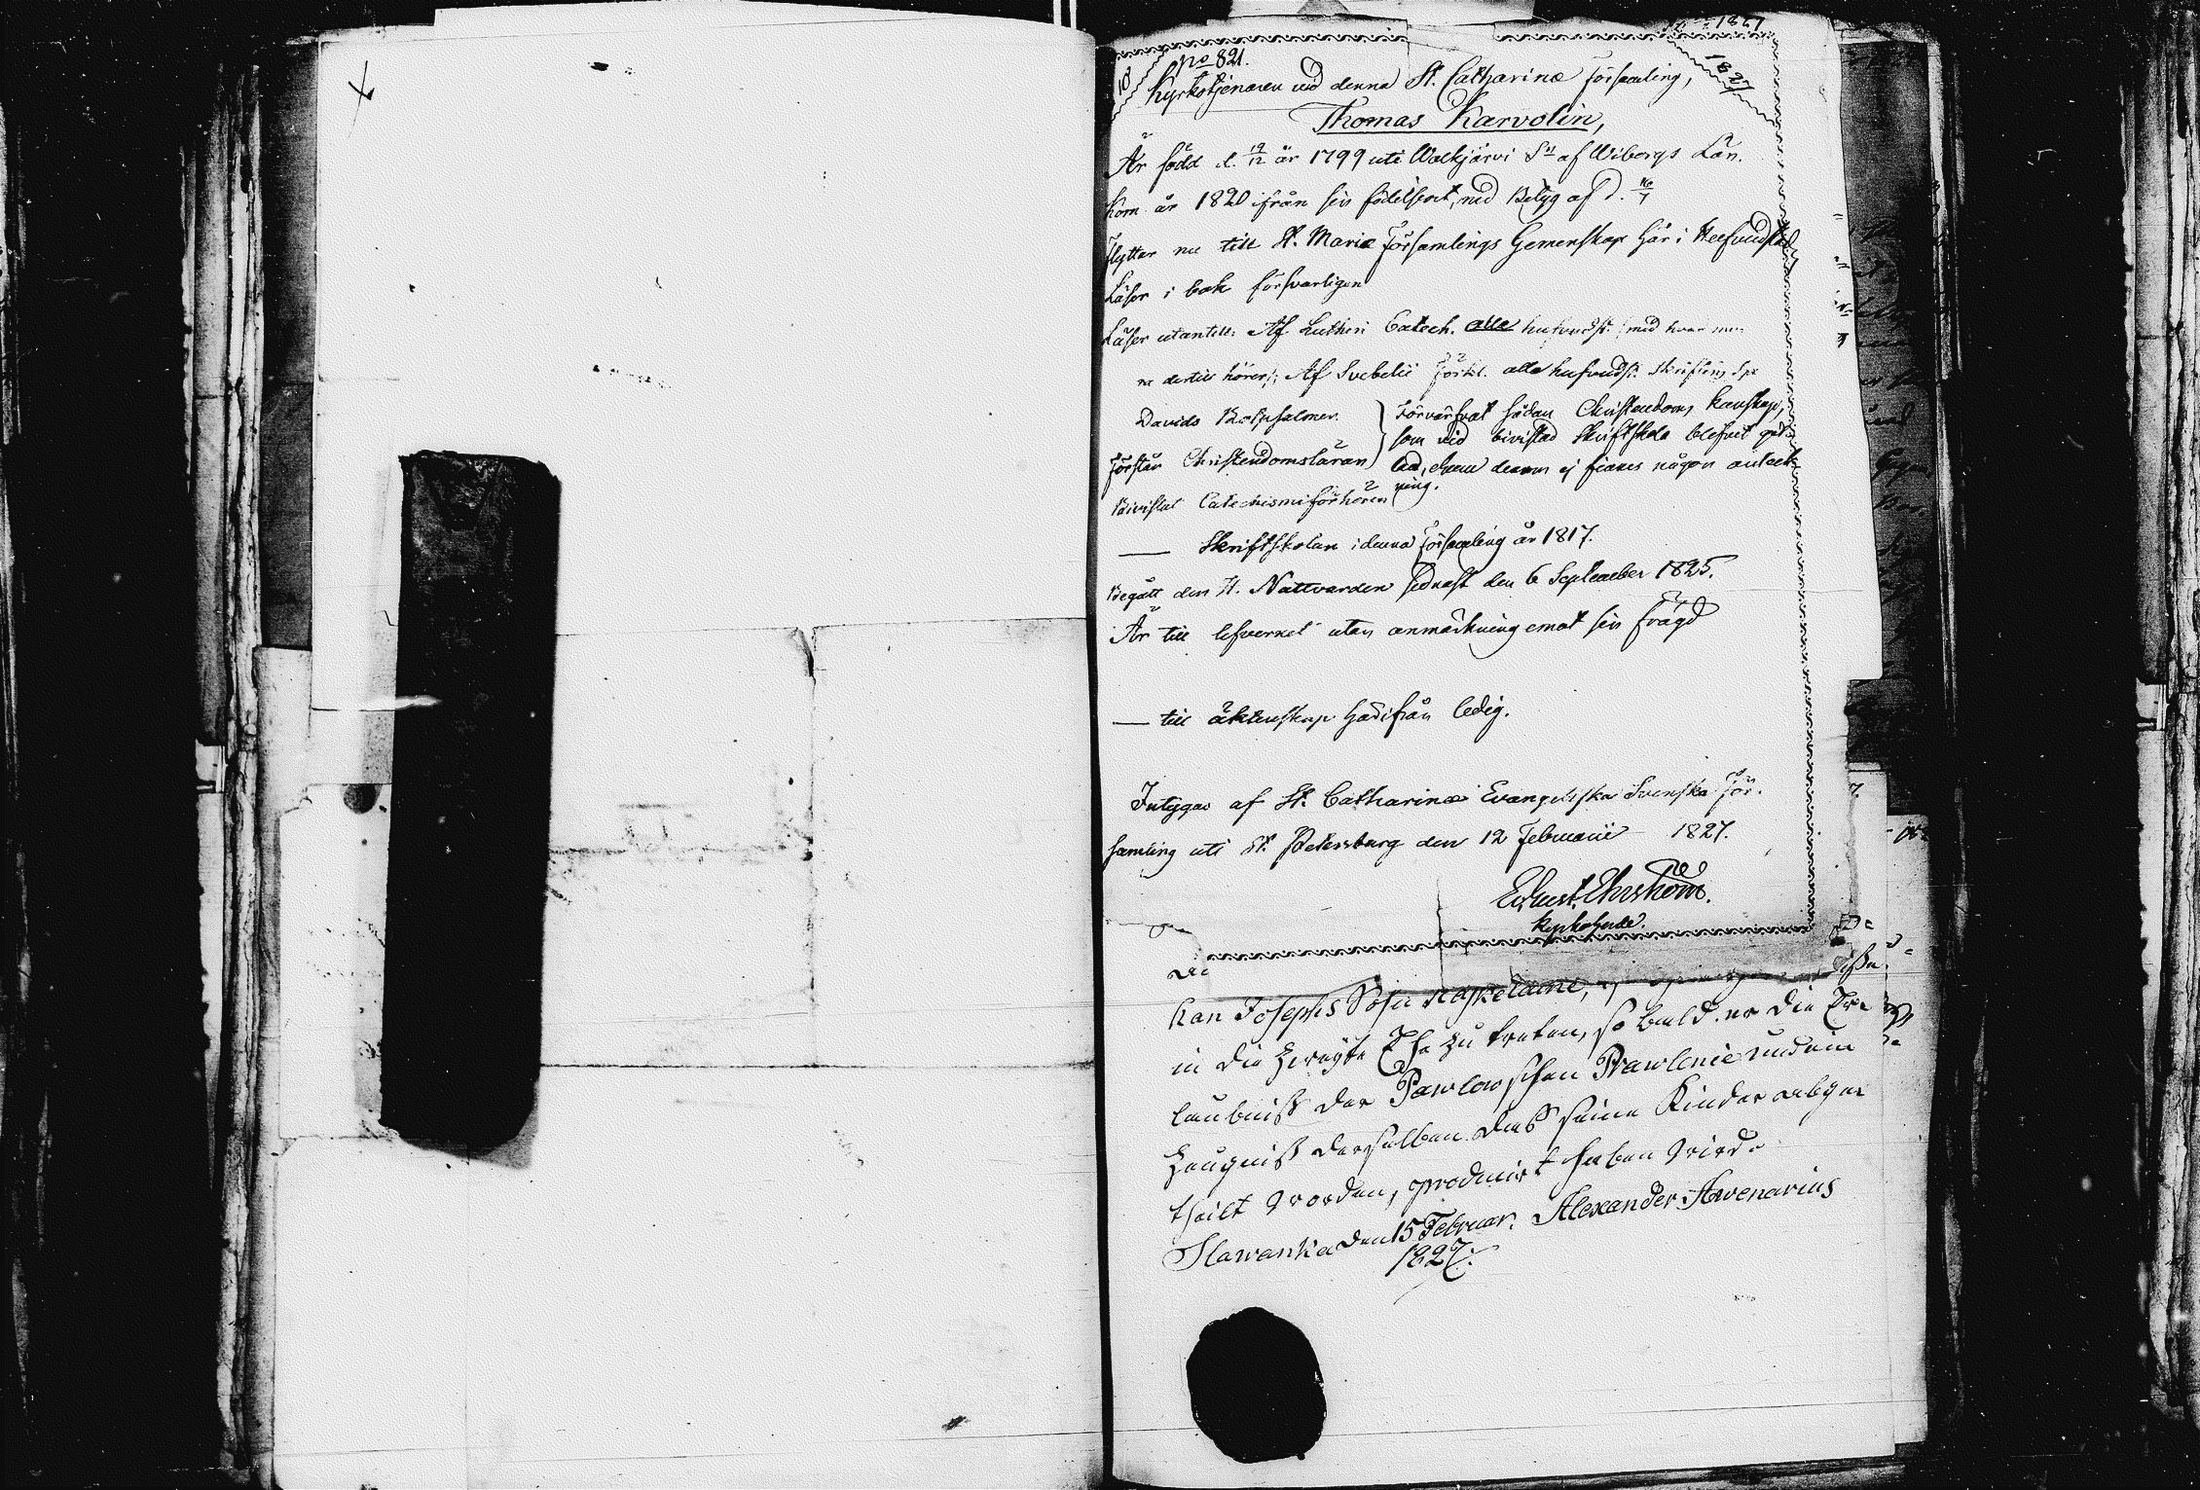 No 821.
1827
Kyrkotjenaren vid denna St. Catharinæ Församling,
Thomas Karvolin,
Är född d. 19/12 år 1799 uti Walkjärvi Sn af Wiborgs Län.
Kom år 1820 ifrån sin födelseort, med Betyg af d. 16/1
Flyttar nu till St. Mariæ Församlings Gemenskap här i Hufvudstad
Läser i bok försvarligen
Läser utantill: Af Lutheri Catech. alla hufvudst. med hvar
na dertill hörer; Af Svebelii Förkl. alla hufvudst. Skriftens Spr
Davids Botpsalmer.
Förstår Christendomsläran
Förvärfvat sådan Christendoms kunskap,
som vid bivistad Skriftskola blifvit
lad, ehuru derom ej finnes någon anteck-
ning.
Bivistat Catechismiförhören
— Skriftskolan i denna Församling år 1817.
Begått den H. Nattvarden sednast den 6 September 1825.
Är till lefvernet utan anmärkning emot sin frägd
— till äktenskap härifrån ledig.
Intygas af St. Catharinæ Evangeliska Svenska För-
samling uti St. Petersburg den 12 Februarii 1827.
Ehrström.
Kyrkoherde.
kan Josephs Sohn
in die zweyte Ehe zu treten, so bald er die Er-
laubniß der Pawlowschen Prawlenie und ein
Zeugniß derselben daß seine Kinder abge-
theilt worden, producirt haben wird.
Slawanka den 15 Februar. Alexander Awenarius
1827.